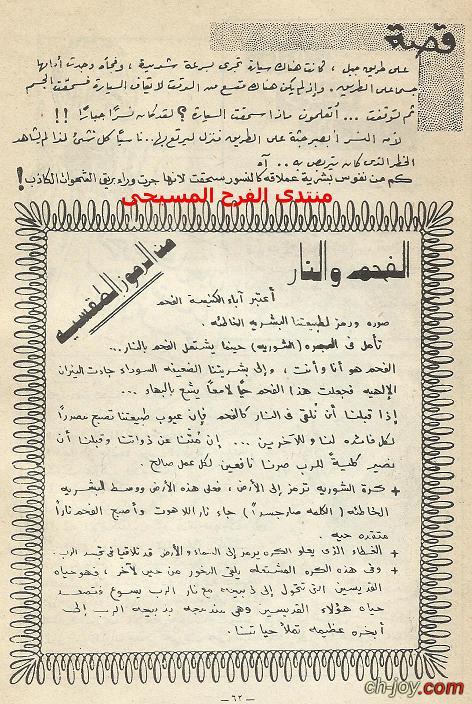 قصة
على طريق جبل ، كانت هناك سيارة تجرى بسرعة شديدة ، وفجأة وجدت أمامها
جسم على الطريق .. وإذ لم يكن هناك متسع من الوقت لايقاف السيارة فسحقت الجسم
ثم توقفت ... أتعلمون ماذا سحقت السيارة ؟ لقد كان نسراً جباراً !!
لأن النسر أبصر جثة على الطريق فنزل ليرتفع بها .. ناسياً كل شئ لذا لم يشاهد
الخطر الذى كان يتربص به .. آه
كم من نفوس بشرية عملاقة كالنسور سحقت لانها جرت وراء بريق الشهوات الكاذب !
منتدى الفرح المسيحى
من الرموز الطقسية
الفحم والنار
أعتبر آباء الكنيسة الفحم
صوره ورمز لطبيعتنا البشريه الخاطئه .
تأمل فى المجمره (الشوريه) حينما يشتعل الفحم بالنار...
الفحم هو أنا وأنت ، وإلى بشريتنا الضعيفه السوداء جاءت النيران
الإلهيه فجعلت هذا الفحم حياً لامعاً يشع بالبهاء ...
إذا قبلنا أن نُلقى فى النار كالفحم فإن عيوب طبيعتنا تصبح مصدراً
لكل فائده لنا وللآخرين ... إن متنا عن ذواتنا وقبلنا أن
نصير كلية للرب صرنا نافعين لكل عمل صالح .
+ كرة الشوريه ترمز إلى الأرض ، فعلى هذه الأرض ووسط البشريه
الخاطئه (الكلمه صار جسداً) جاء نار اللاهوت وأصبح الفحم ناراً
متقده حيه .
+ الغطاء الذى يعلو الكره يرمز إلى السماء والأرض قد تلاقيا فى تجسد الرب .
+ وفى هذه الكره المشتعله يلقى البخور من حين لآخر ، فهو حياه
القديسين التى تتحول إلى ذبيحه مع نار الرب يسوع فتصعد
حياه هؤلاء القديسين وهى مندمجه بذبيحه الرب إلى
أبخره عظيمه تملأ حياتنا .
- ٦٢ -
ch-joy.com